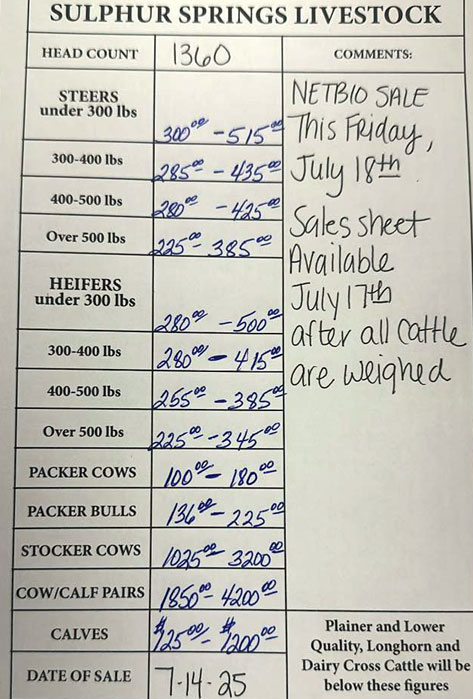 SULPHUR SPRINGS LIVESTOCK
HEAD COUNT 1360 COMMENTS:
STEERS
under 300 lbs 300.00 - 515.00
300-400 lbs 285.00 - 435.00
400-500 lbs 280.00 - 425.00
Over 500 lbs 225.00 - 385.00
HEIFERS
under 300 lbs 280.00 - 500.00
300-400 lbs 280.00 - 415.00
400-500 lbs 255.00 - 385.00
Over 500 lbs 225.00 - 345.00
PACKER COWS 100.00 - 180.00
PACKER BULLS 136.00 - 225.00
STOCKER COWS 1025.00 - 3200.00
COW/CALF PAIRS 1850.00 - 4200.00
CALVES
DATE OF SALE 7-14-25
NETBIO SALE
This Friday,
July 18th.
Sales sheet
Available
July 17th
after all cattle
are weighed
Plainer and Lower
Quality, Longhorn and
Dairy Cross Cattle will be
below these figures